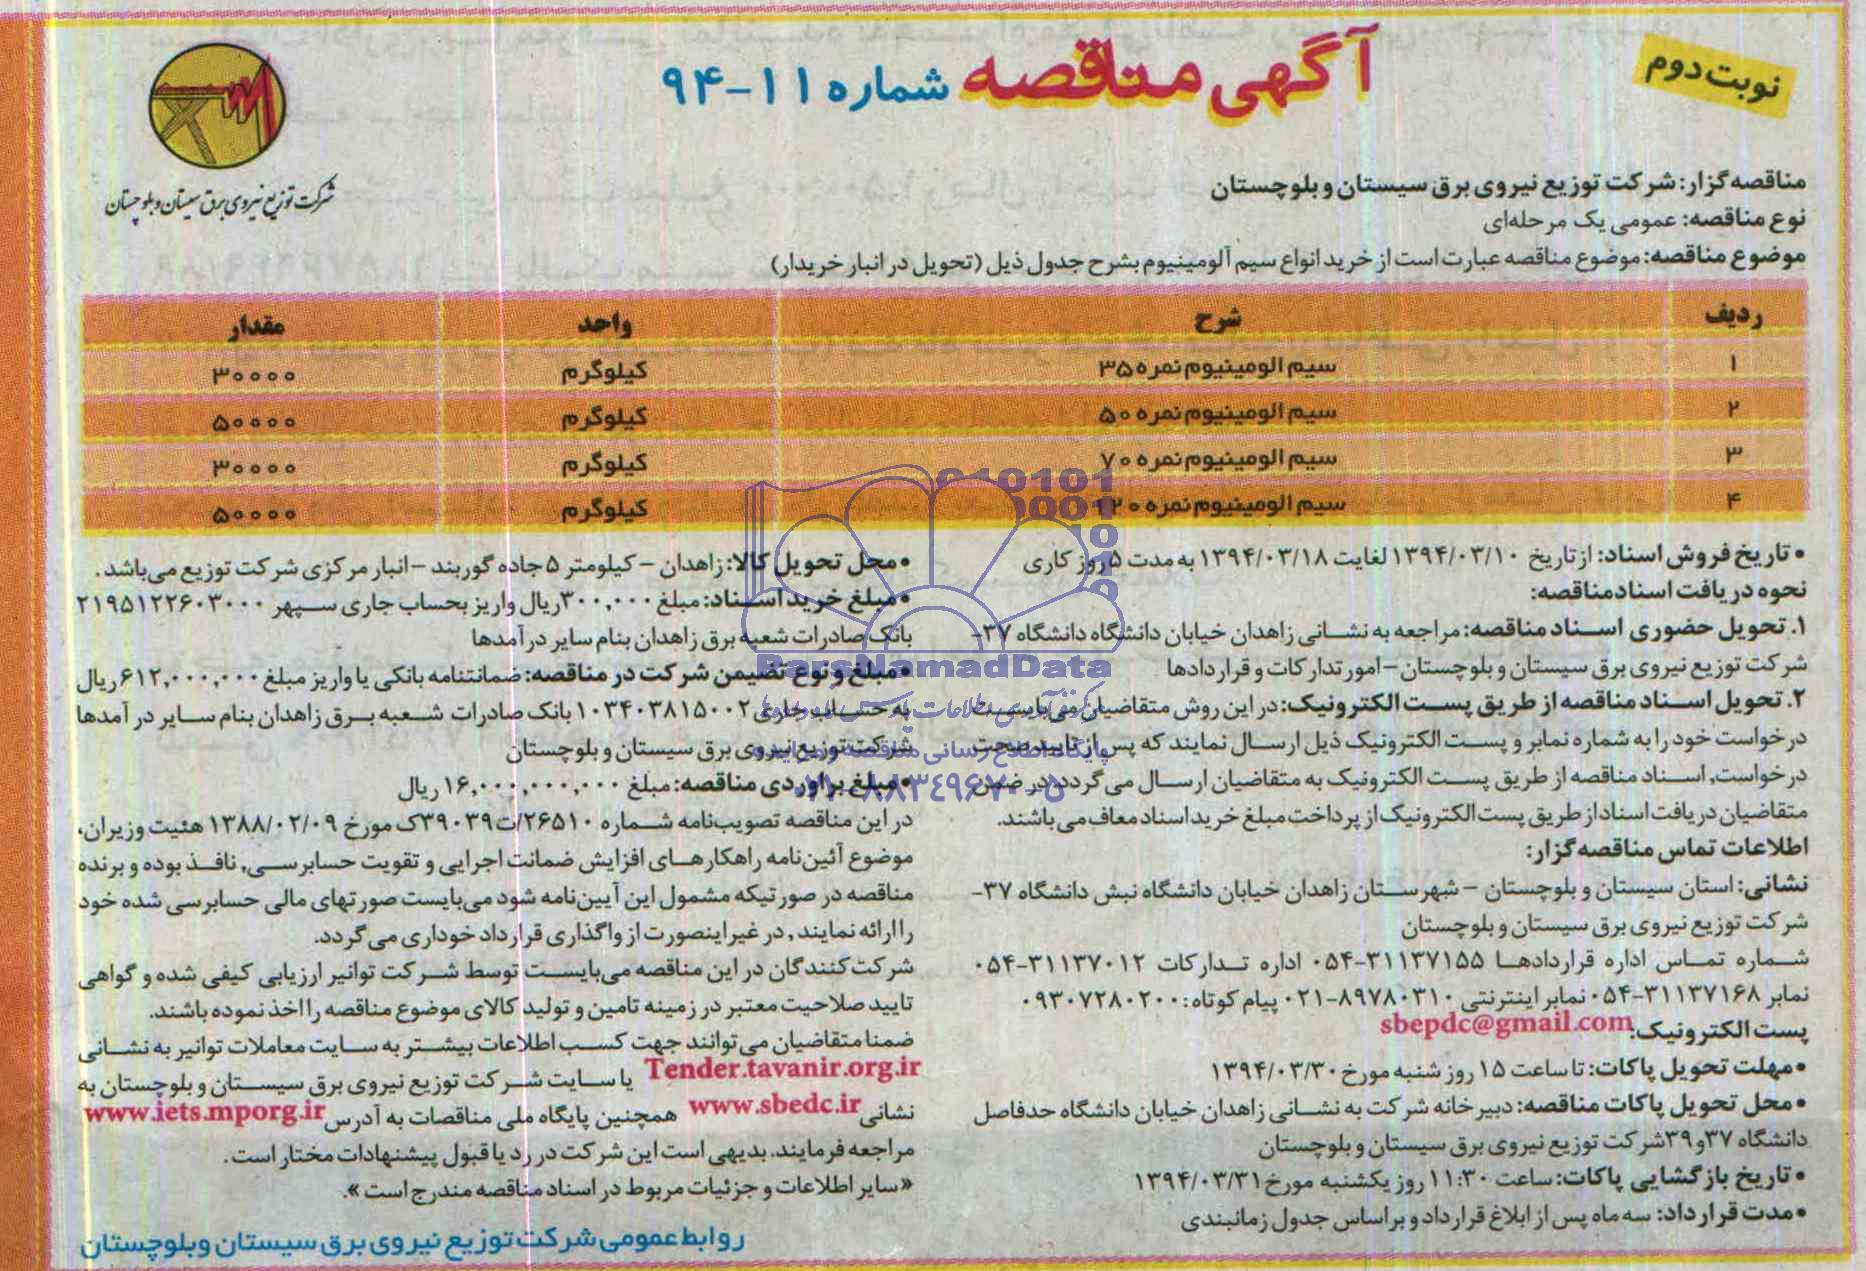 نوبت دوم
آگهی مناقصه شماره ۱۱-۹۴
شرکت توزیع نیروی برق سیستان و بلوچستان
مناقصه گزار: شرکت توزیع نیروی برق سیستان و بلوچستان
نوع مناقصه: عمومی یک مرحله‌ای
موضوع مناقصه: موضوع مناقصه عبارت است از خرید انواع سیم آلومینیوم بشرح جدول ذیل (تحویل در انبار خریدار)
ردیف شرح واحد مقدار
۱ سیم الومینیوم نمره ۳۵ کیلوگرم ۳۰۰۰۰
۲ سیم الومینیوم نمره ۵۰ کیلوگرم ۵۰۰۰۰
۳ سیم الومینیوم نمره ۷۰ کیلوگرم ۳۰۰۰۰
۴ سیم الومینیوم نمره ۱۲۰ کیلوگرم ۵۰۰۰۰
• تاریخ فروش اسناد: از تاریخ ۱۳۹۴/۰۳/۱۰ لغایت ۱۳۹۴/۰۳/۱۸ به مدت ۵ روز کاری
نحوه دریافت اسناد مناقصه:
۱. تحویل حضوری اسناد مناقصه: مراجعه به نشانی زاهدان خیابان دانشگاه دانشگاه ۳۷-
شرکت توزیع نیروی برق سیستان و بلوچستان - امور تدارکات و قراردادها
۲. تحویل اسناد مناقصه از طریق پست الکترونیک: در این روش متقاضیان می‌بایست
درخواست خود را به شماره نمابر و پست الکترونیک ذیل ارسال نمایند که پس از تایید صحت
درخواست، اسناد مناقصه از طریق پست الکترونیک به متقاضیان ارسال می گردد. در ضمن
متقاضیان دریافت اسناد از طریق پست الکترونیک از پرداخت مبلغ خرید اسناد معاف می باشند.
اطلاعات تماس مناقصه گزار:
نشانی: استان سیستان و بلوچستان - شهرستان زاهدان خیابان دانشگاه نبش دانشگاه ۳۷-
شرکت توزیع نیروی برق سیستان و بلوچستان
شماره تماس اداره قراردادها ۳۱۱۳۷۱۵۵-۰۵۴ اداره تدارکات ۳۱۱۳۷۰۱۲-۰۵۴
نمابر ۳۱۱۳۷۱۶۸-۰۵۴ نمابر اینترنتی ۸۹۷۸۰۳۱۰-۰۲۱ پیام کوتاه: ۰۹۳۰۷۲۸۰۲۰۰
پست الکترونیک: sbepdc@gmail.com
• مهلت تحویل پاکات: تا ساعت ۱۵ روز شنبه مورخ ۱۳۹۴/۰۳/۳۰
• محل تحویل پاکات مناقصه: دبیرخانه شرکت به نشانی زاهدان خیابان دانشگاه حدفاصل
دانشگاه ۳۷و۳۹ شرکت توزیع نیروی برق سیستان و بلوچستان
• تاریخ بازگشایی پاکات: ساعت ۱۱:۳۰ روز یکشنبه مورخ ۱۳۹۴/۰۳/۳۱
• مدت قرارداد: سه ماه پس از ابلاغ قرارداد و بر اساس جدول زمانبندی
• محل تحویل کالا: زاهدان - کیلومتر ۵ جاده گوربند - انبار مرکزی شرکت توزیع می‌باشد.
• مبلغ خرید اسناد: مبلغ ۳۰۰,۰۰۰ ریال واریز بحساب جاری سپهر ۲۱۹۵۱۲۲۶۰۳۰۰۰
بانک صادرات شعبه برق زاهدان بنام سایر درآمدها
• مبلغ و نوع تضیمن شرکت در مناقصه: ضمانتنامه بانکی یا واریز مبلغ ۶۱۲,۰۰۰,۰۰۰ ریال
به حساب جاری ۱۰۳۴۰۳۸۱۵۰۰۲ بانک صادرات شعبه برق زاهدان بنام سایر در آمدها
شرکت توزیع نیروی برق سیستان و بلوچستان
• مبلغ براوردی مناقصه: مبلغ ۱۶,۰۰۰,۰۰۰,۰۰۰ ریال
در این مناقصه تصویب‌نامه شماره ۲۶۵۱۰/ت۳۹۰۳۹ک مورخ ۱۳۸۸/۰۲/۰۹ هئیت وزیران،
موضوع آئین‌نامه راهکارهای افزایش ضمانت اجرایی و تقویت حسابرسی، نافذ بوده و برنده
مناقصه در صورتیکه مشمول این آیین‌نامه شود می‌بایست صورتهای مالی حسابرسی شده خود
را ارائه نمایند، در غیر اینصورت از واگذاری قرارداد خوداری می گردد.
شرکت کنندگان در این مناقصه می‌بایست توسط شرکت توانیر ارزیابی کیفی شده و گواهی
تایید صلاحیت معتبر در زمینه تامین و تولید کالای موضوع مناقصه را اخذ نموده باشند.
ضمنا متقاضیان می توانند جهت کسب اطلاعات بیشتر به سایت معاملات توانیر به نشانی
Tender.tavanir.org.ir یا سایت شرکت توزیع نیروی برق سیستان و بلوچستان به
نشانی www.sbedc.ir همچنین پایگاه ملی مناقصات به آدرس www.iets.mporg.ir
مراجعه فرمایند. بدیهی است این شرکت در رد یا قبول پیشنهادات مختار است.
«سایر اطلاعات و جزئیات مربوط در اسناد مناقصه مندرج است».
روابط عمومی شرکت توزیع نیروی برق سیستان و بلوچستان
ParsNamadData
پایگاه اطلاع رسانی مناقصه و مزایده
۰۲۱-۸۸۳۴۹۶۷۰-۵